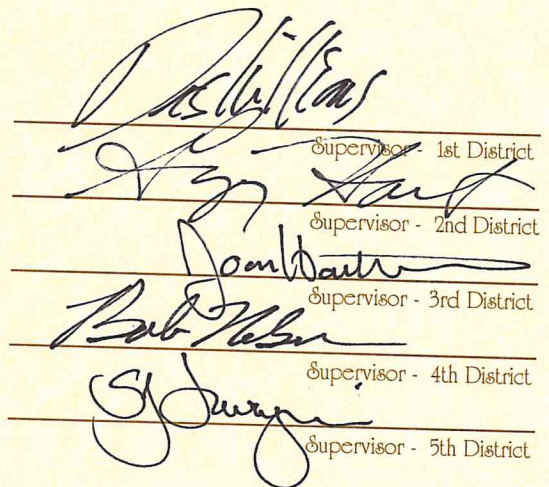 Das Williams
Supervisor - 1st District
Supervisor - 2nd District
Joan Hartmann
Supervisor - 3rd District
Bob Nelson
Supervisor - 4th District
Supervisor - 5th District